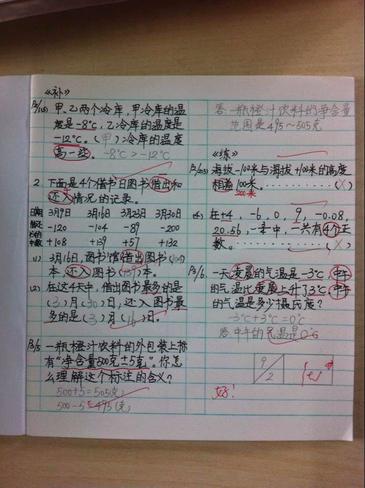 《补》
甲、乙两个冷库,甲冷库的温
度是-8℃,乙冷库的温度是
-12℃。(甲)冷库的温度
高一些。-8℃>-12℃
2 下面是4个借书日图书借出和
还入情况的记录。
日期 3月9日 3月16日 3月23日 3月30日
-120 -104 -89 -200
+108 +139 +57 +132
(1) 3月16日,图书馆借出图书
本,还入图书(139)本。
(2) 在这4天中,借出图书最多的是
(3)月(30)日,还入图书最
多的是(3)月(16)日。
一瓶橙汁饮料的外包装上标
有“净含量500克±5克”。你怎
么理解这个标注的含义?
500+5=505(克)
500-5=495(克)
答:一瓶橙汁饮料的净含量
范围是495~505克
《练》
海拔-100米与海拔+100米的高度
相差100米。……(×)
200米
在+4,-6,0,9,-0.08,
20.56,-
数。
一天
的气温是-3℃
的气温比
上升了3℃
的气温是多少摄氏度?
-3℃+3℃=0℃
答:中午的气温是0℃
9
2
好!